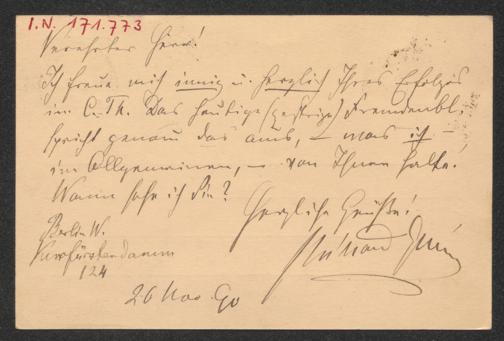 I.N. 171.773
Verehrter Herr!
Ich freue mich innig u. herzlich Ihres Erfolges
im C. Th. Das heutige (gestrige) Fremdenbl.
spricht genau das aus, – was ich –
im Allgemeinen, – von Ihnen halte.
Wann sehe ich Sie?
Herzliche Grüße!
Berlin W.
Kurfürstendamm
124
26 Nov. 90